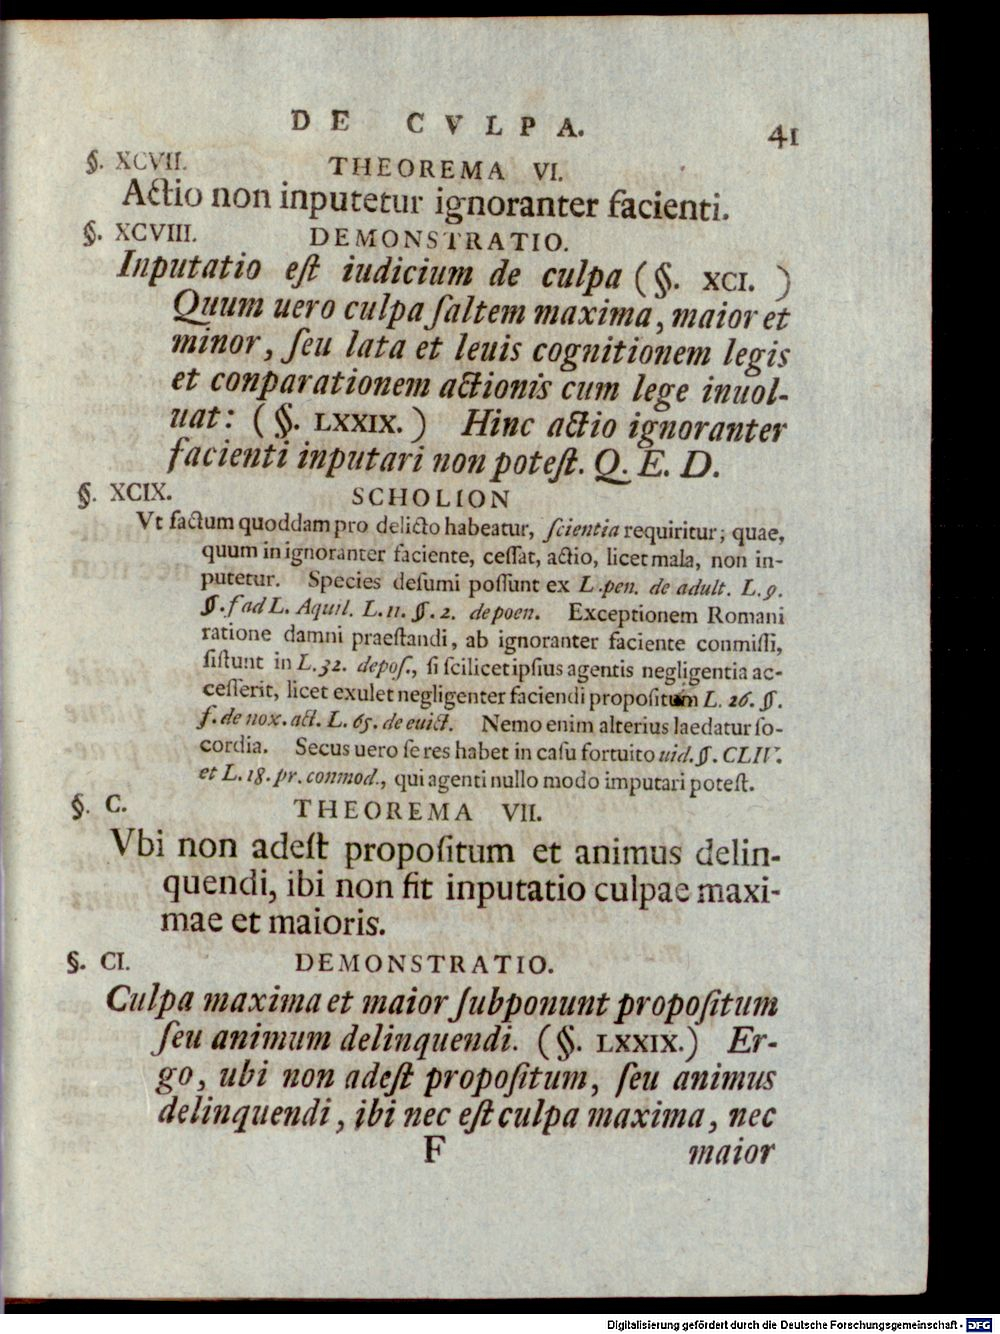 DE CVLPA. 41
§. XCVII. THEOREMA VI.
Actio non inputetur ignoranter facienti.
§. XCVIII. DEMONSTRATIO.
Inputatio eſt iudicium de culpa (§. XCI. )
Quum uero culpa ſaltem maxima, maior et
minor, ſeu lata et leuis cognitionem legis
et conparationem actionis cum lege inuol-
uat: (§. LXXIX.) Hinc actio ignoranter
facienti inputari non poteſt. Q. E. D.
§. XCIX. SCHOLION
Vt factum quoddam pro delicto habeatur, ſcientia requiritur; quae,
quum in ignoranter faciente, ceſſat, actio, licet mala, non in-
putetur. Species deſumi poſſunt ex L. pen. de adult. L. 9.
§. f ad L. Aquil. L. 11. §. 2. de poen. Exceptionem Romani
ratione damni praeſtandi, ab ignoranter faciente conmiſſi,
ſiſtunt in L. 32. depoſ., ſi ſcilicet ipſius agentis negligentia ac-
ceſſerit, licet exulet negligenter faciendi propoſitum L. 26. §.
f. de nox. act. L. 65. de euict. Nemo enim alterius laedatur ſo-
cordia. Secus uero ſe res habet in caſu fortuito uid. §. CLIV.
et L. 18. pr. conmod., qui agenti nullo modo imputari poteſt.
§. C. THEOREMA VII.
Vbi non adeſt propoſitum et animus delin-
quendi, ibi non fit inputatio culpae maxi-
mae et maioris.
§. CI. DEMONSTRATIO.
Culpa maxima et maior ſubponunt propoſitum
ſeu animum delinquendi. (§. LXXIX.) Er-
go, ubi non adeſt propoſitum, ſeu animus
delinquendi, ibi nec eſt culpa maxima, nec
F maior
Digitalisierung gefördert durch die Deutsche Forschungsgemeinschaft - DFG